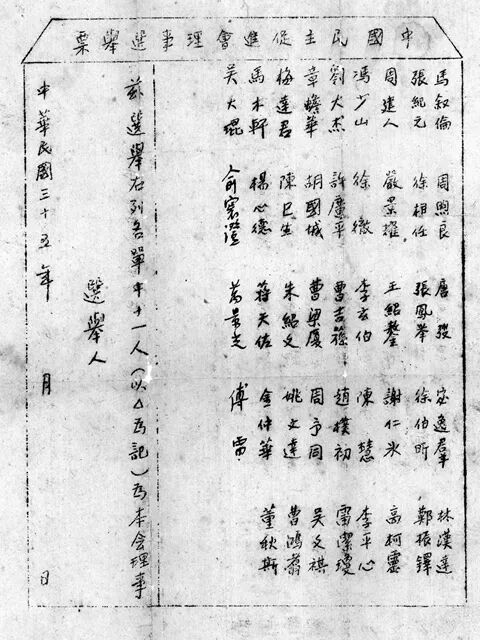 中國民主促進會理事選舉票
馬叙倫 周煦良 唐弢 宓逸羣 林漢達
張紀元 徐相任 張鳳举 徐伯昕 鄭振鐸
周建人 嚴景耀 王紹鏊 謝仁冰 高柯靈
馮少山 徐徹 李玄伯 陳慧 李平心
劉大杰 許廣平 曹吉 趙樸初 雷潔瓊
章蟾華 胡國城 曹梁厦 周予同 吳文祺
梅達君 陳巳生 朱紹文 姚文達 曹鴻翥
馬木軒 楊心德 蔣天佐 金仲華 董秋斯
吳大琨 俞寰澄 萬景光 傅雷
兹選舉右列名單中十一人(以△為記)為本会理事
選舉人
中華民國三十五年 月 日